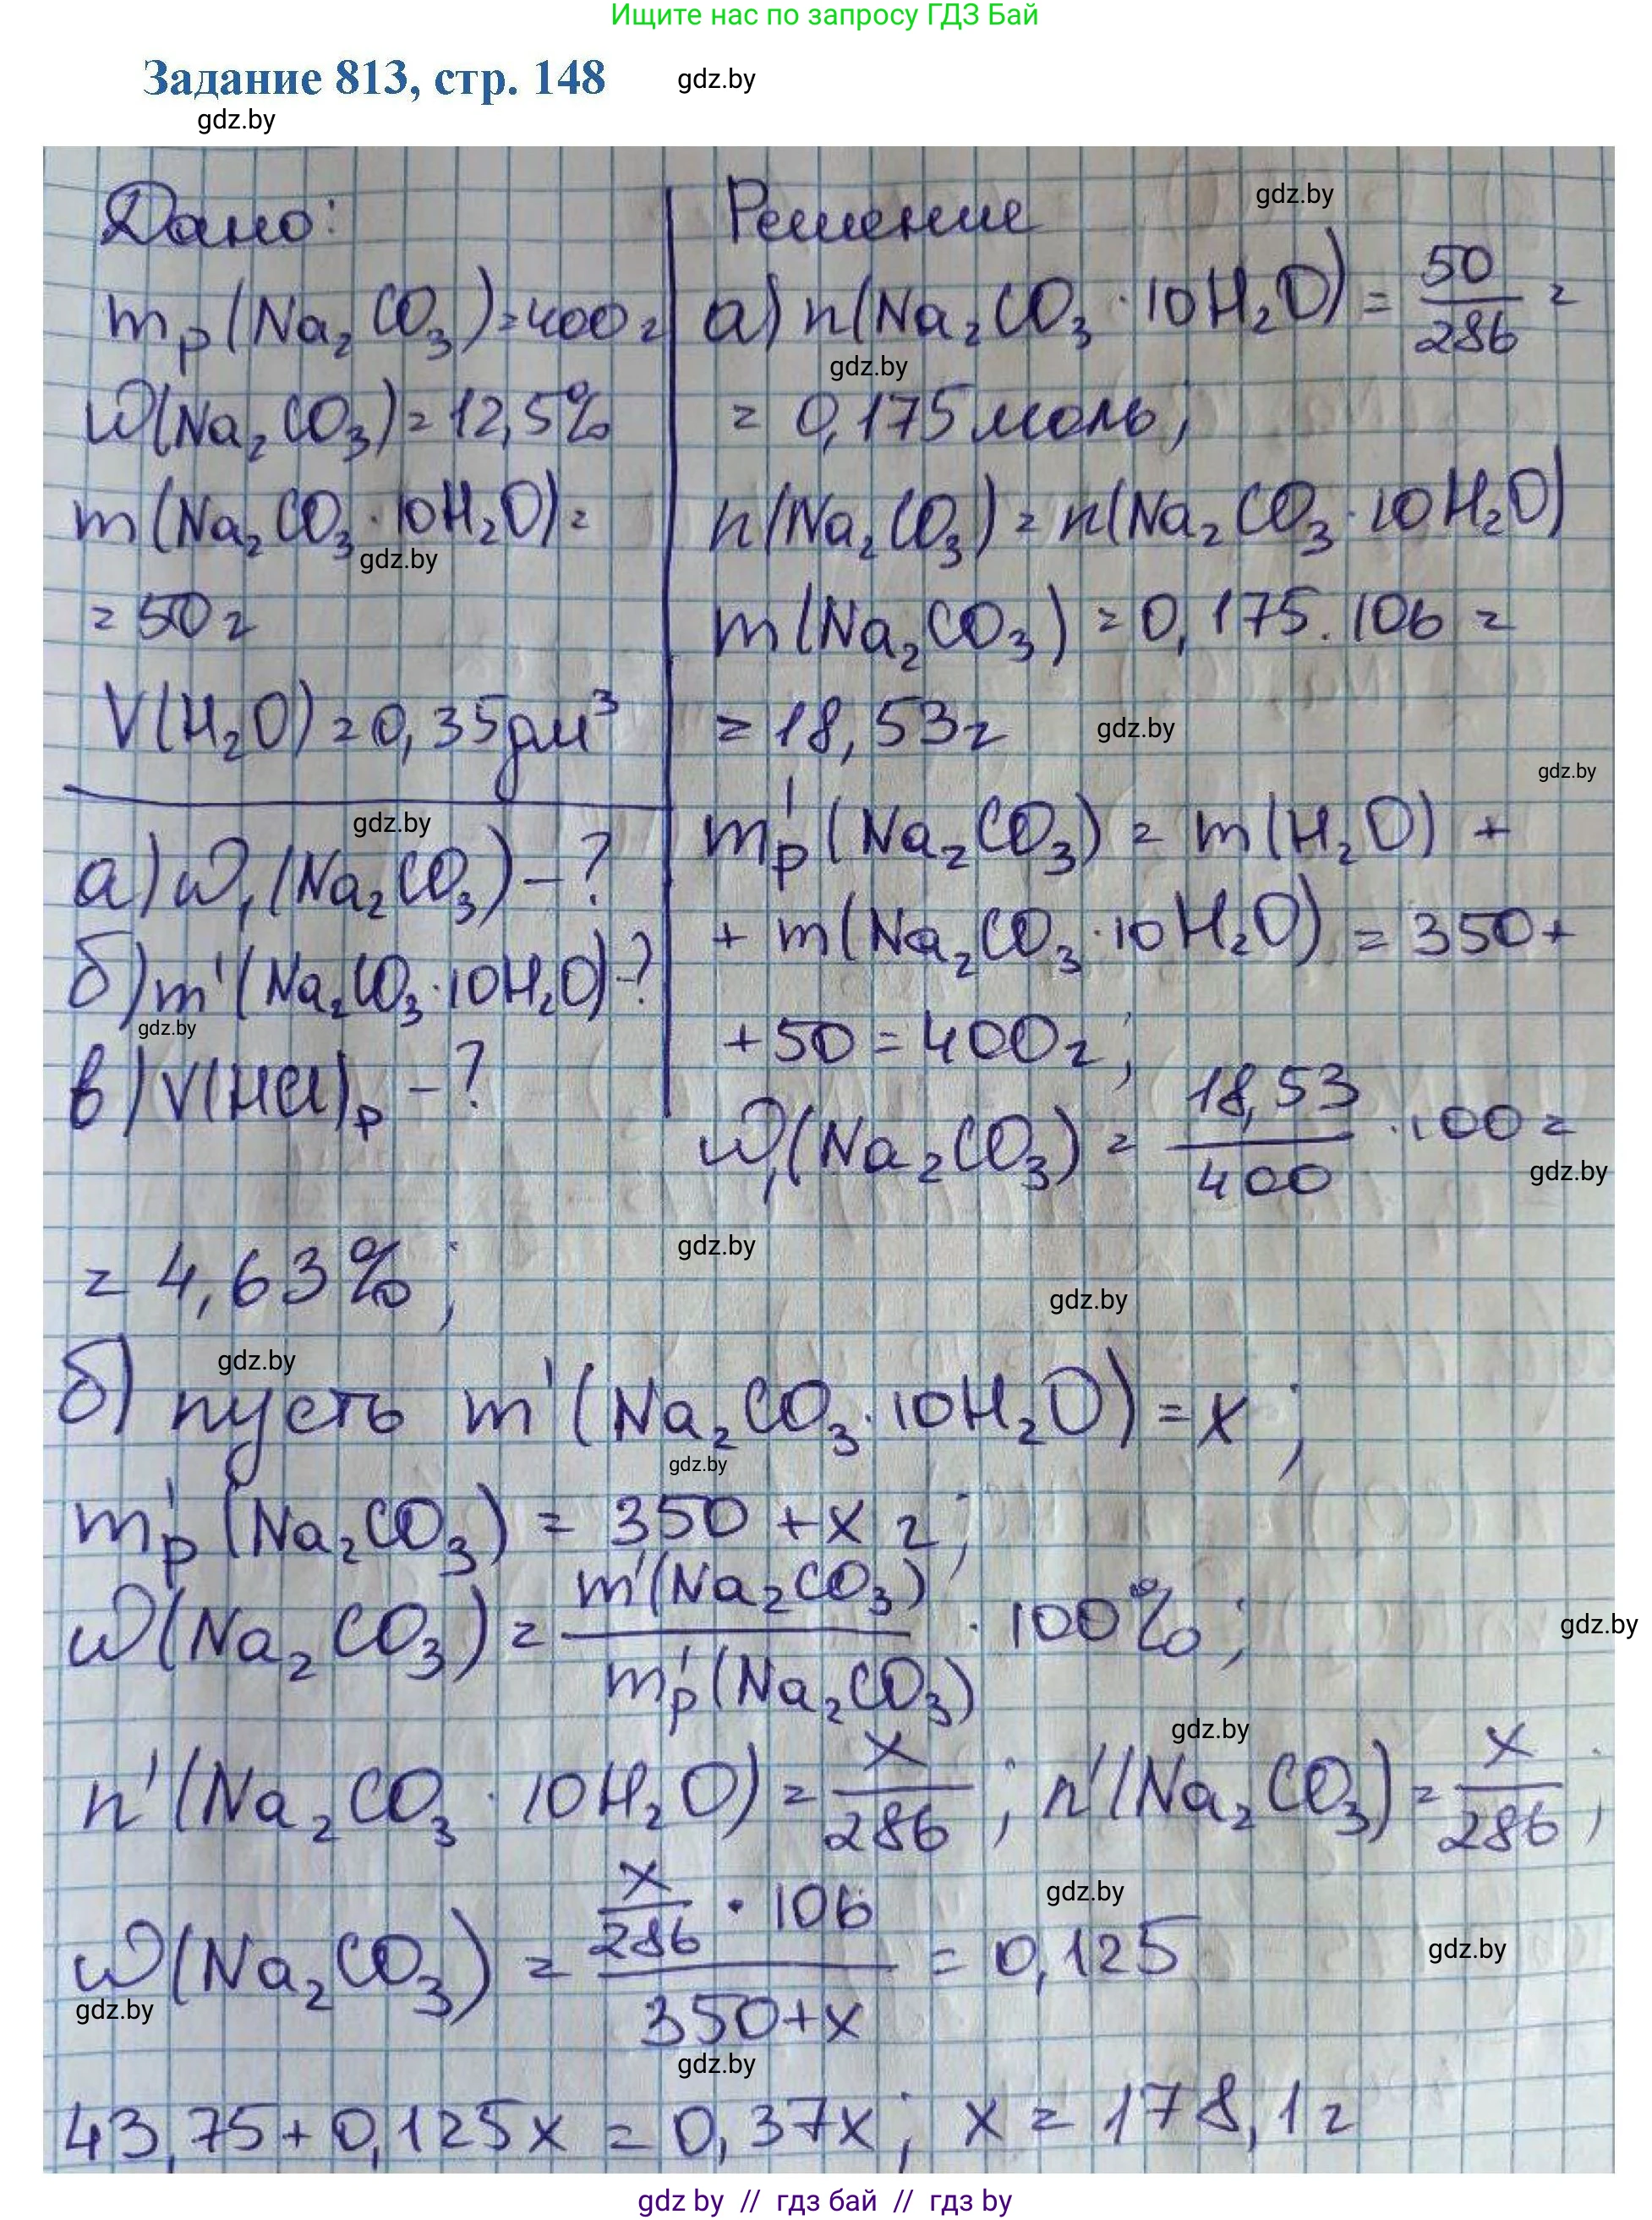 Ищите нас по запросу ГДЗ Бай
Задание 813, стр. 148
gdz.by
gdz.by
Дано:
mр(Na₂CO₃)=400г
ω(Na₂CO₃)=12,5%
m(Na₂CO₃·10H₂O)=
=50г
V(H₂O)=0,35дм³
а) ω₁(Na₂CO₃)-?
б) m'(Na₂CO₃·10H₂O)-?
в) V(HCl)р-?
gdz.by
gdz.by
gdz.by
Решение
gdz.by
а) n(Na₂CO₃·10H₂O)=50/286=
gdz.by
=0,175моль;
n(Na₂CO₃)=n(Na₂CO₃·10H₂O)
m(Na₂CO₃)=0,175·106=
=18,53г
gdz.by
gdz.by
m'р(Na₂CO₃)=m(H₂O)+
+m(Na₂CO₃·10H₂O)=350+
+50=400г;
ω₁(Na₂CO₃)=18,53/400·100=
gdz.by
=4,63%;
gdz.by
gdz.by
gdz.by
б) пусть m'(Na₂CO₃·10H₂O)=x;
gdz.by
m'р(Na₂CO₃)=350+x г;
ω(Na₂CO₃)=m'(Na₂CO₃)/m'р(Na₂CO₃)·100%;
gdz.by
gdz.by
n'(Na₂CO₃·10H₂O)=x/286; n'(Na₂CO₃)=x/286;
gdz.by
ω(Na₂CO₃)=(x/286·106)/(350+x)=0,125
gdz.by
gdz.by
gdz.by
43,75+0,125x=0,37x; x=178,1г
gdz by // гдз бай // гдз by